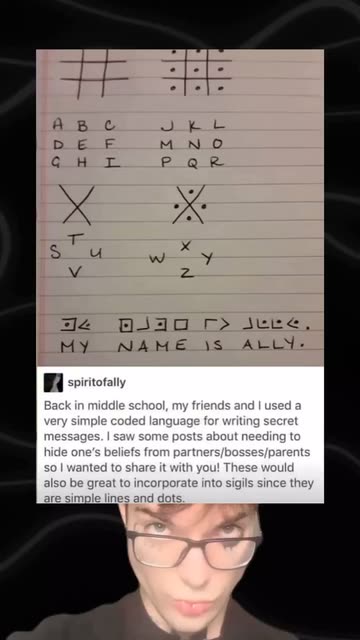 A B C J K L
D E F M N O
G H I P Q R
T X
S U W Y
V Z
MY NAME IS ALLY.
spiritofally
Back in middle school, my friends and I used a
very simple coded language for writing secret
messages. I saw some posts about needing to
hide one's beliefs from partners/bosses/parents
so I wanted to share it with you! These would
also be great to incorporate into sigils since they
are simple lines and dots.